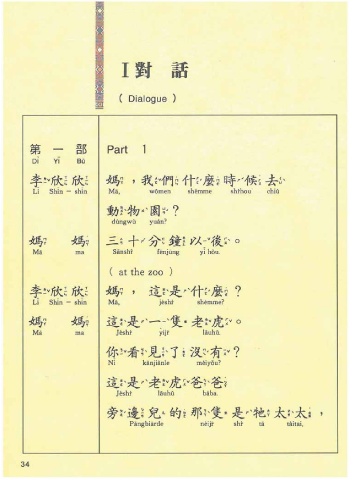 I 對 話
( Dialogue )
第 一 部 Part 1
Dì Yī Bù
李欣欣 媽，我們什麼時候去
Lǐ Shin-shin Mā, wǒmen shémme shŕhou chiù
動物園？
dùngwù yuán?
媽 媽 三十分鐘以後。
Mā ma Sānshŕ fēnjūng yǐ hòu.
( at the zoo )
李欣欣 媽，這是什麼？
Lǐ Shin-shin Mā, jèshr̀ shémme?
媽 媽 這是一隻老虎。
Mā ma Jèshr̀ yìjr̄ lǎuhǔ.
你看見了沒有？
Nǐ kànjiànle méiyǒu?
這是老虎爸爸
Jèshr̀ lǎuhǔ bàba.
旁邊兒的那隻是牠太太，
Pángbiārde nèijr̄ shr̀ tā tàitai,
34